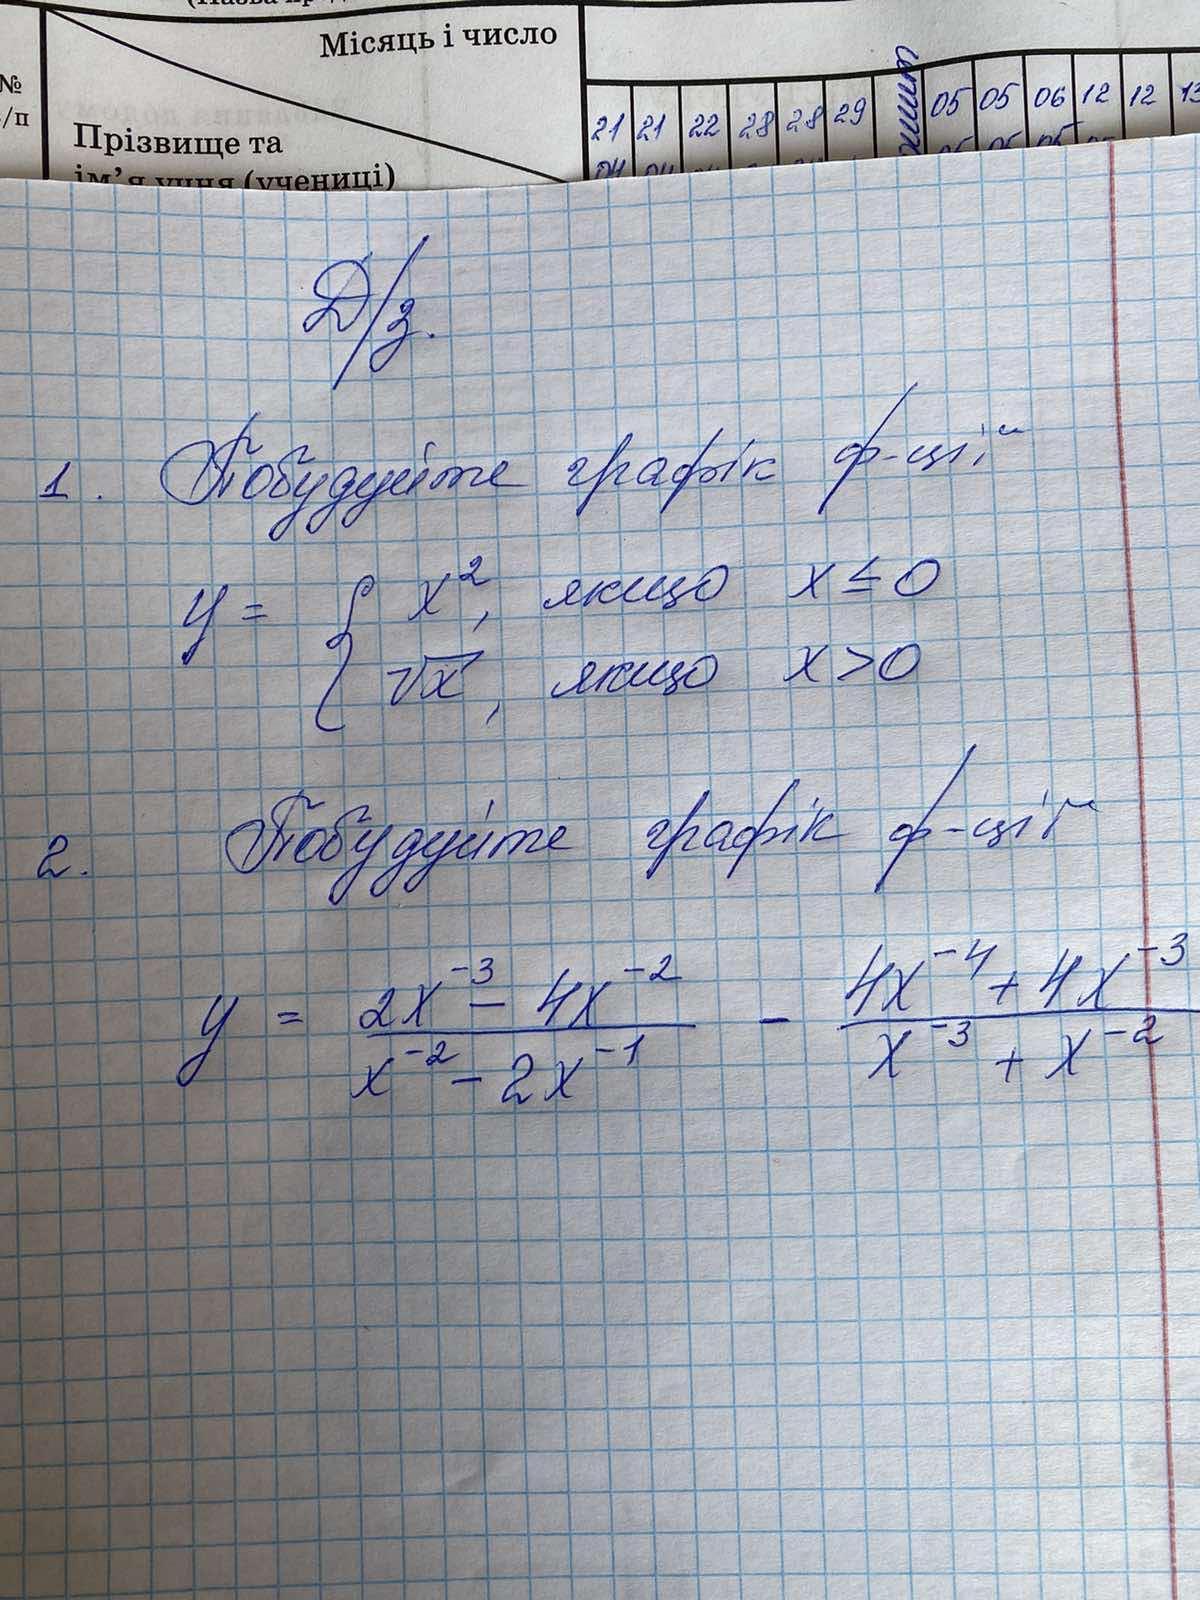 Місяць і число
№
з/п
Прізвище та
ім'я учня (учениці)
21 21 22 28 28 29 05 05 06 12 12 13
Д/з.
1. Побудуйте графік ф-ції
y = { x², якщо x ≤ 0
√x, якщо x > 0
2. Побудуйте графік ф-ції
y = (2x⁻³ - 4x⁻²)/(x⁻² - 2x⁻¹) - (4x⁻⁴ + 4x⁻³)/(x⁻³ + x⁻²)